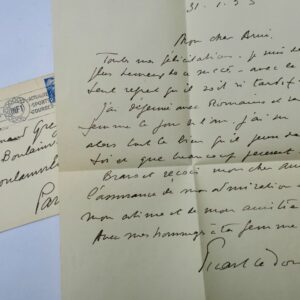 31.1.53
Mon cher Ami,
Toutes mes félicitations. je suis
plus heureux de ce succès avec le
seul regret qu'il soit si tardif.
j'ai déjeuné avec Romains et
femme le jour de l'an. j'ai
alors tout le bien qu'il pense de
toi et que beaucoup pensent
Bravo et reçois mon cher ami
l'assurance de mon admiration
mon estime et de mon amitié
Avec mes hommages à ta femme
Picart Le Doux
ACTUALITÉS
SPORT
COURSES
Par